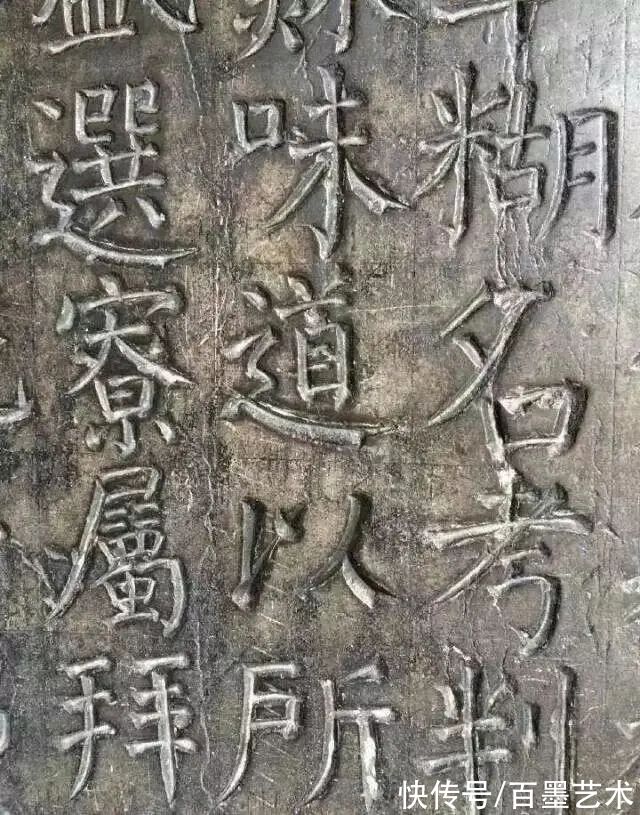 糊名考判
味道以所
選寮屬拜
快传号/百墨艺术